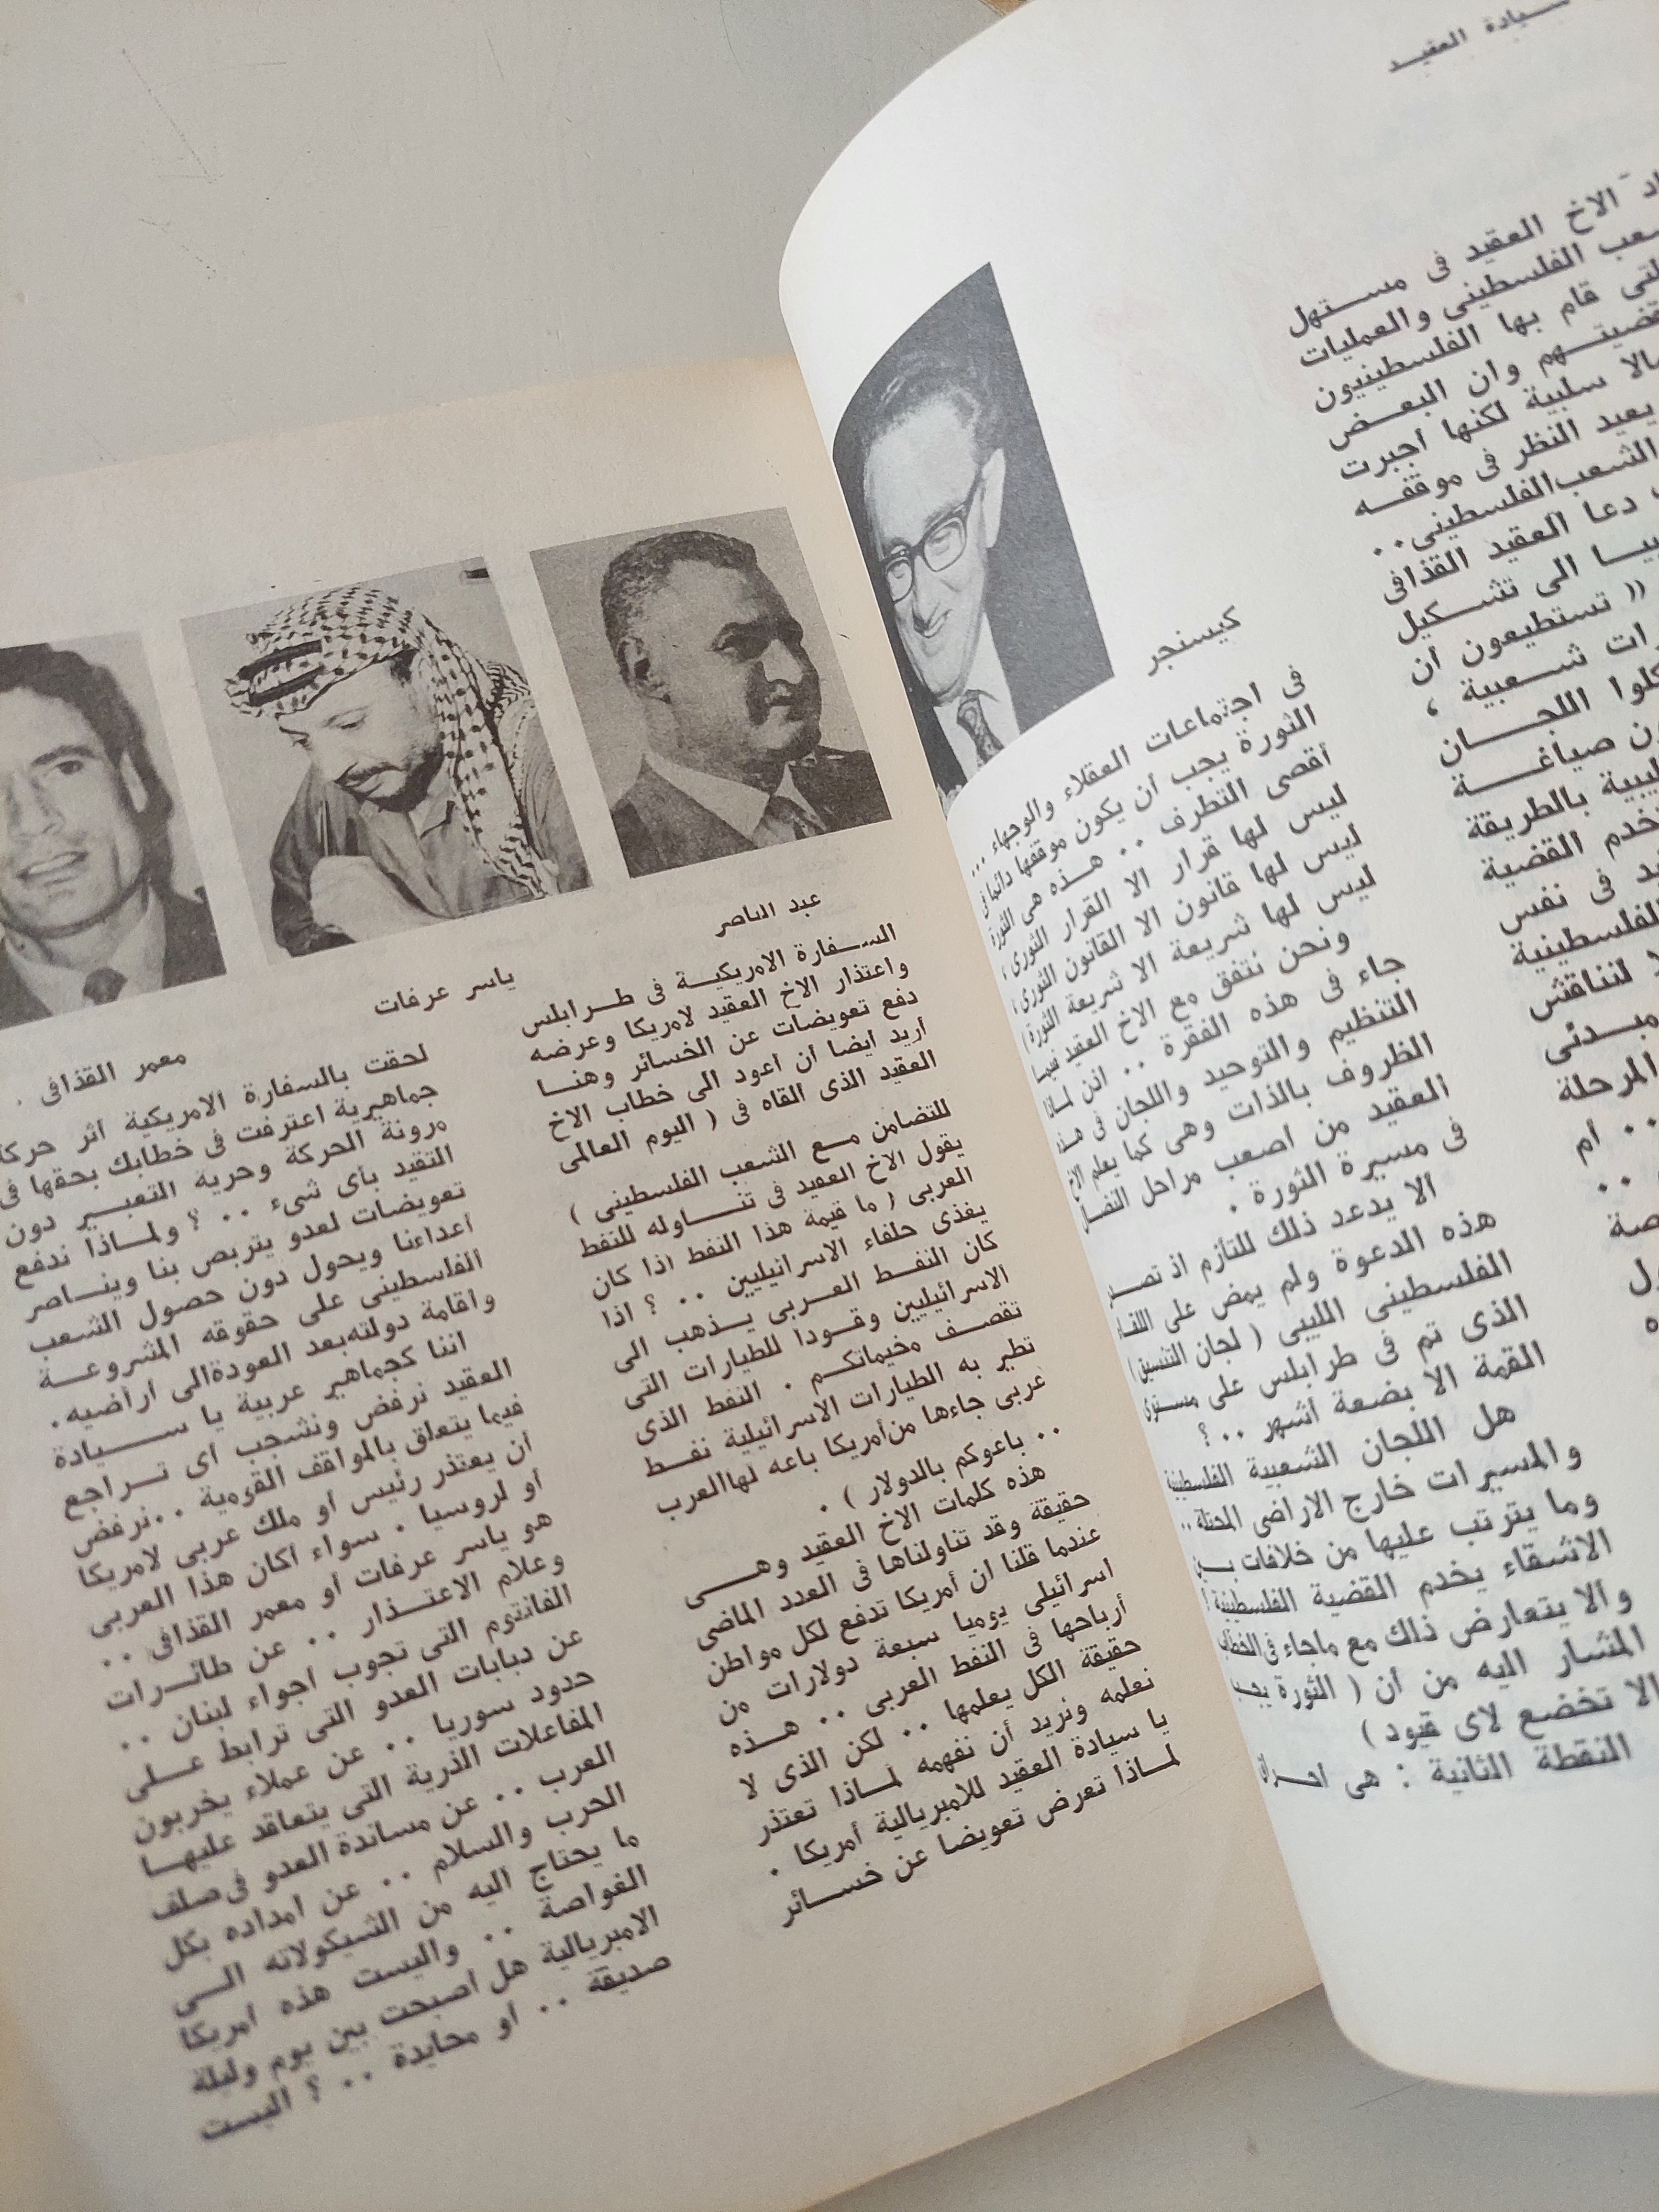 سيادة العقيد
الاخ العقيد فى مستهل
الفلسطينى والعمليات
قام بها الفلسطينيون
وان البعض
سلبية لكنها أجبرت
يعيد النظر فى موقفه
الشعب الفلسطينى ..
دعا العقيد القذافى
الى تشكيل
« تستطيعون أن
شعبية ،
اللجان
صياغة
بالطريقة
القضية
فى نفس
الفلسطينية
لنناقش
مبدئى
المرحلة
.. أم
..
كيسنجر
فى اجتماعات العقلاء والوجهاء ...
الثورة يجب أن يكون موقفها دائما فى
أقصى التطرف .. هذه هى الثورة
ليس لها قرار الا القرار الثورى ،
ليس لها قانون الا القانون الثورى ،
ليس لها شريعة الا شريعة الثورة )
ونحن نتفق مع الاخ العقيد فيما
جاء فى هذه الفقرة .. اذن لماذا
التنظيم والتوحيد واللجان فى هذه
الظروف بالذات وهى كما يعلم الاخ
العقيد من اصعب مراحل النضال
فى مسيرة الثورة .
الا يدعد ذلك للتأزم اذ
هذه الدعوة ولم يمض على اللقاء
الفلسطينى الليبى ( لجان التنسيق )
الذى تم فى طرابلس على مستوى
القمة الا بضعة أشهر .. ؟
هل اللجان الشعبية الفلسطينية
والمسيرات خارج الاراضى المحتلة ..
وما يترتب عليها من خلافات بين
الاشقاء يخدم القضية الفلسطينية
والا يتعارض ذلك مع ماجاء فى الخطاب
المشار اليه من أن ( الثورة يجب
الا تخضع لاى قيود )
النقطة الثانية : هى
عبد الناصر
ياسر عرفات
معمر القذافى .
السفارة الامريكية فى طرابلس
واعتذار الاخ العقيد لامريكا وعرضه
دفع تعويضات عن الخسائر وهنا
أريد ايضا أن اعود الى خطاب الاخ
العقيد الذى القاه فى ( اليوم العالمى
للتضامن مع الشعب الفلسطينى )
يقول الاخ العقيد فى تناوله للنفط
العربى ( ما قيمة هذا النفط اذا كان
يغذى حلفاء الاسرائيليين .. ؟ اذا
كان النفط العربى يذهب الى
الاسرائيليين وقودا للطيارات التى
تقصف مخيماتكم . النفط الذى
تطير به الطيارات الاسرائيلية نفط
عربى جاءها من أمريكا باعه لها العرب
.. باعوكم بالدولار ) .
هذه كلمات الاخ العقيد وهى
حقيقة وقد تناولناها فى العدد الماضى
عندما قلنا ان أمريكا تدفع لكل مواطن
اسرائيلى يوميا سبعة دولارات من
أرباحها فى النفط العربى .. هذه
حقيقة الكل يعلمها .. لكن الذى لا
نعلمه ونريد أن نفهمه لماذا تعتذر
يا سيادة العقيد للامبريالية أمريكا .
لماذا تعرض تعويضا عن خسائر
لحقت بالسفارة الامريكية أثر حركة
جماهيرية اعترفت فى خطابك بحقها فى
مرونة الحركة وحرية التعبير دون
التقيد بأى شىء .. ؟ ولماذا ندفع
تعويضات لعدو يتربص بنا ويناصر
أعداءنا ويحول دون حصول الشعب
الفلسطينى على حقوقه المشروعة
واقامة دولته بعد العودة الى أراضيه .
اننا كجماهير عربية يا سيادة
العقيد نرفض ونشجب اى تراجع
فيما يتعلق بالمواقف القومية .. نرفض
أن يعتذر رئيس أو ملك عربى لامريكا
أو لروسيا . سواء اكان هذا العربى
هو ياسر عرفات أو معمر القذافى ..
وعلام الاعتذار .. عن طائرات
الفانتوم التى تجوب اجواء لبنان ..
عن دبابات العدو التى ترابط على
حدود سوريا .. عن عملاء يخربون
المفاعلات الذرية التى يتعاقد عليها
العرب .. عن مساندة العدو فى صلف
الحرب والسلام .. عن امداده بكل
ما يحتاج اليه من الشيكولاته الى
الغواصة .. واليست هذه امريكا
الامبريالية هل أصبحت بين يوم وليلة
صديقة .. او محايدة .. ؟ اليست